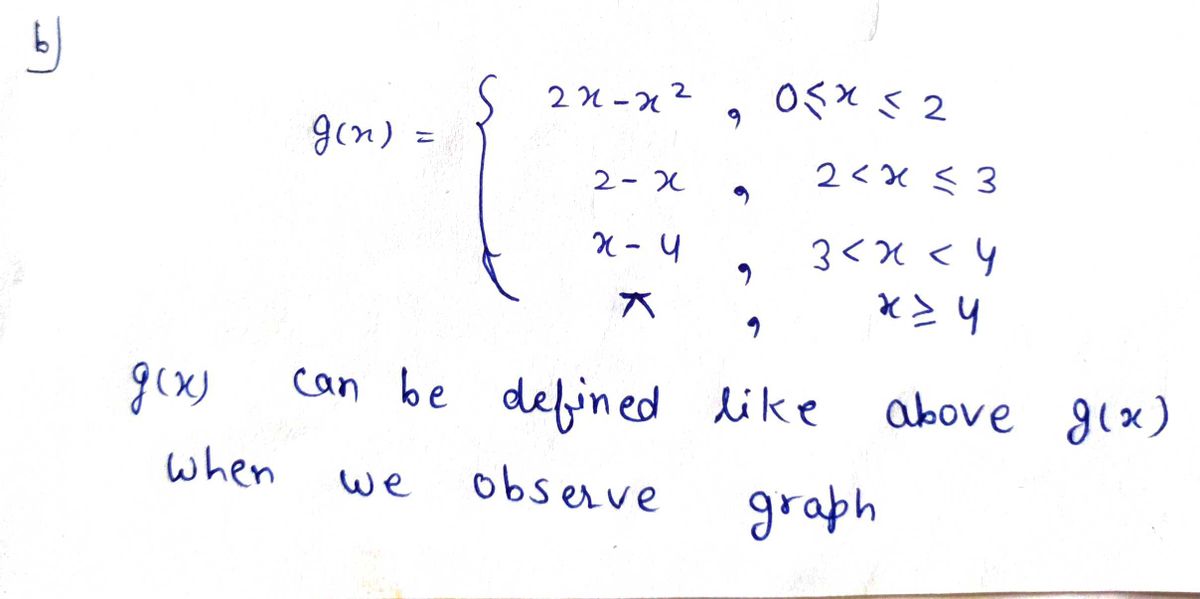 b)
g(x) = { 2x-x² , 0≤x ≤ 2
2-x , 2<x ≤ 3
x-4 , 3<x < 4
π , x≥4
g(x) can be defined like above g(x)
when we observe graph